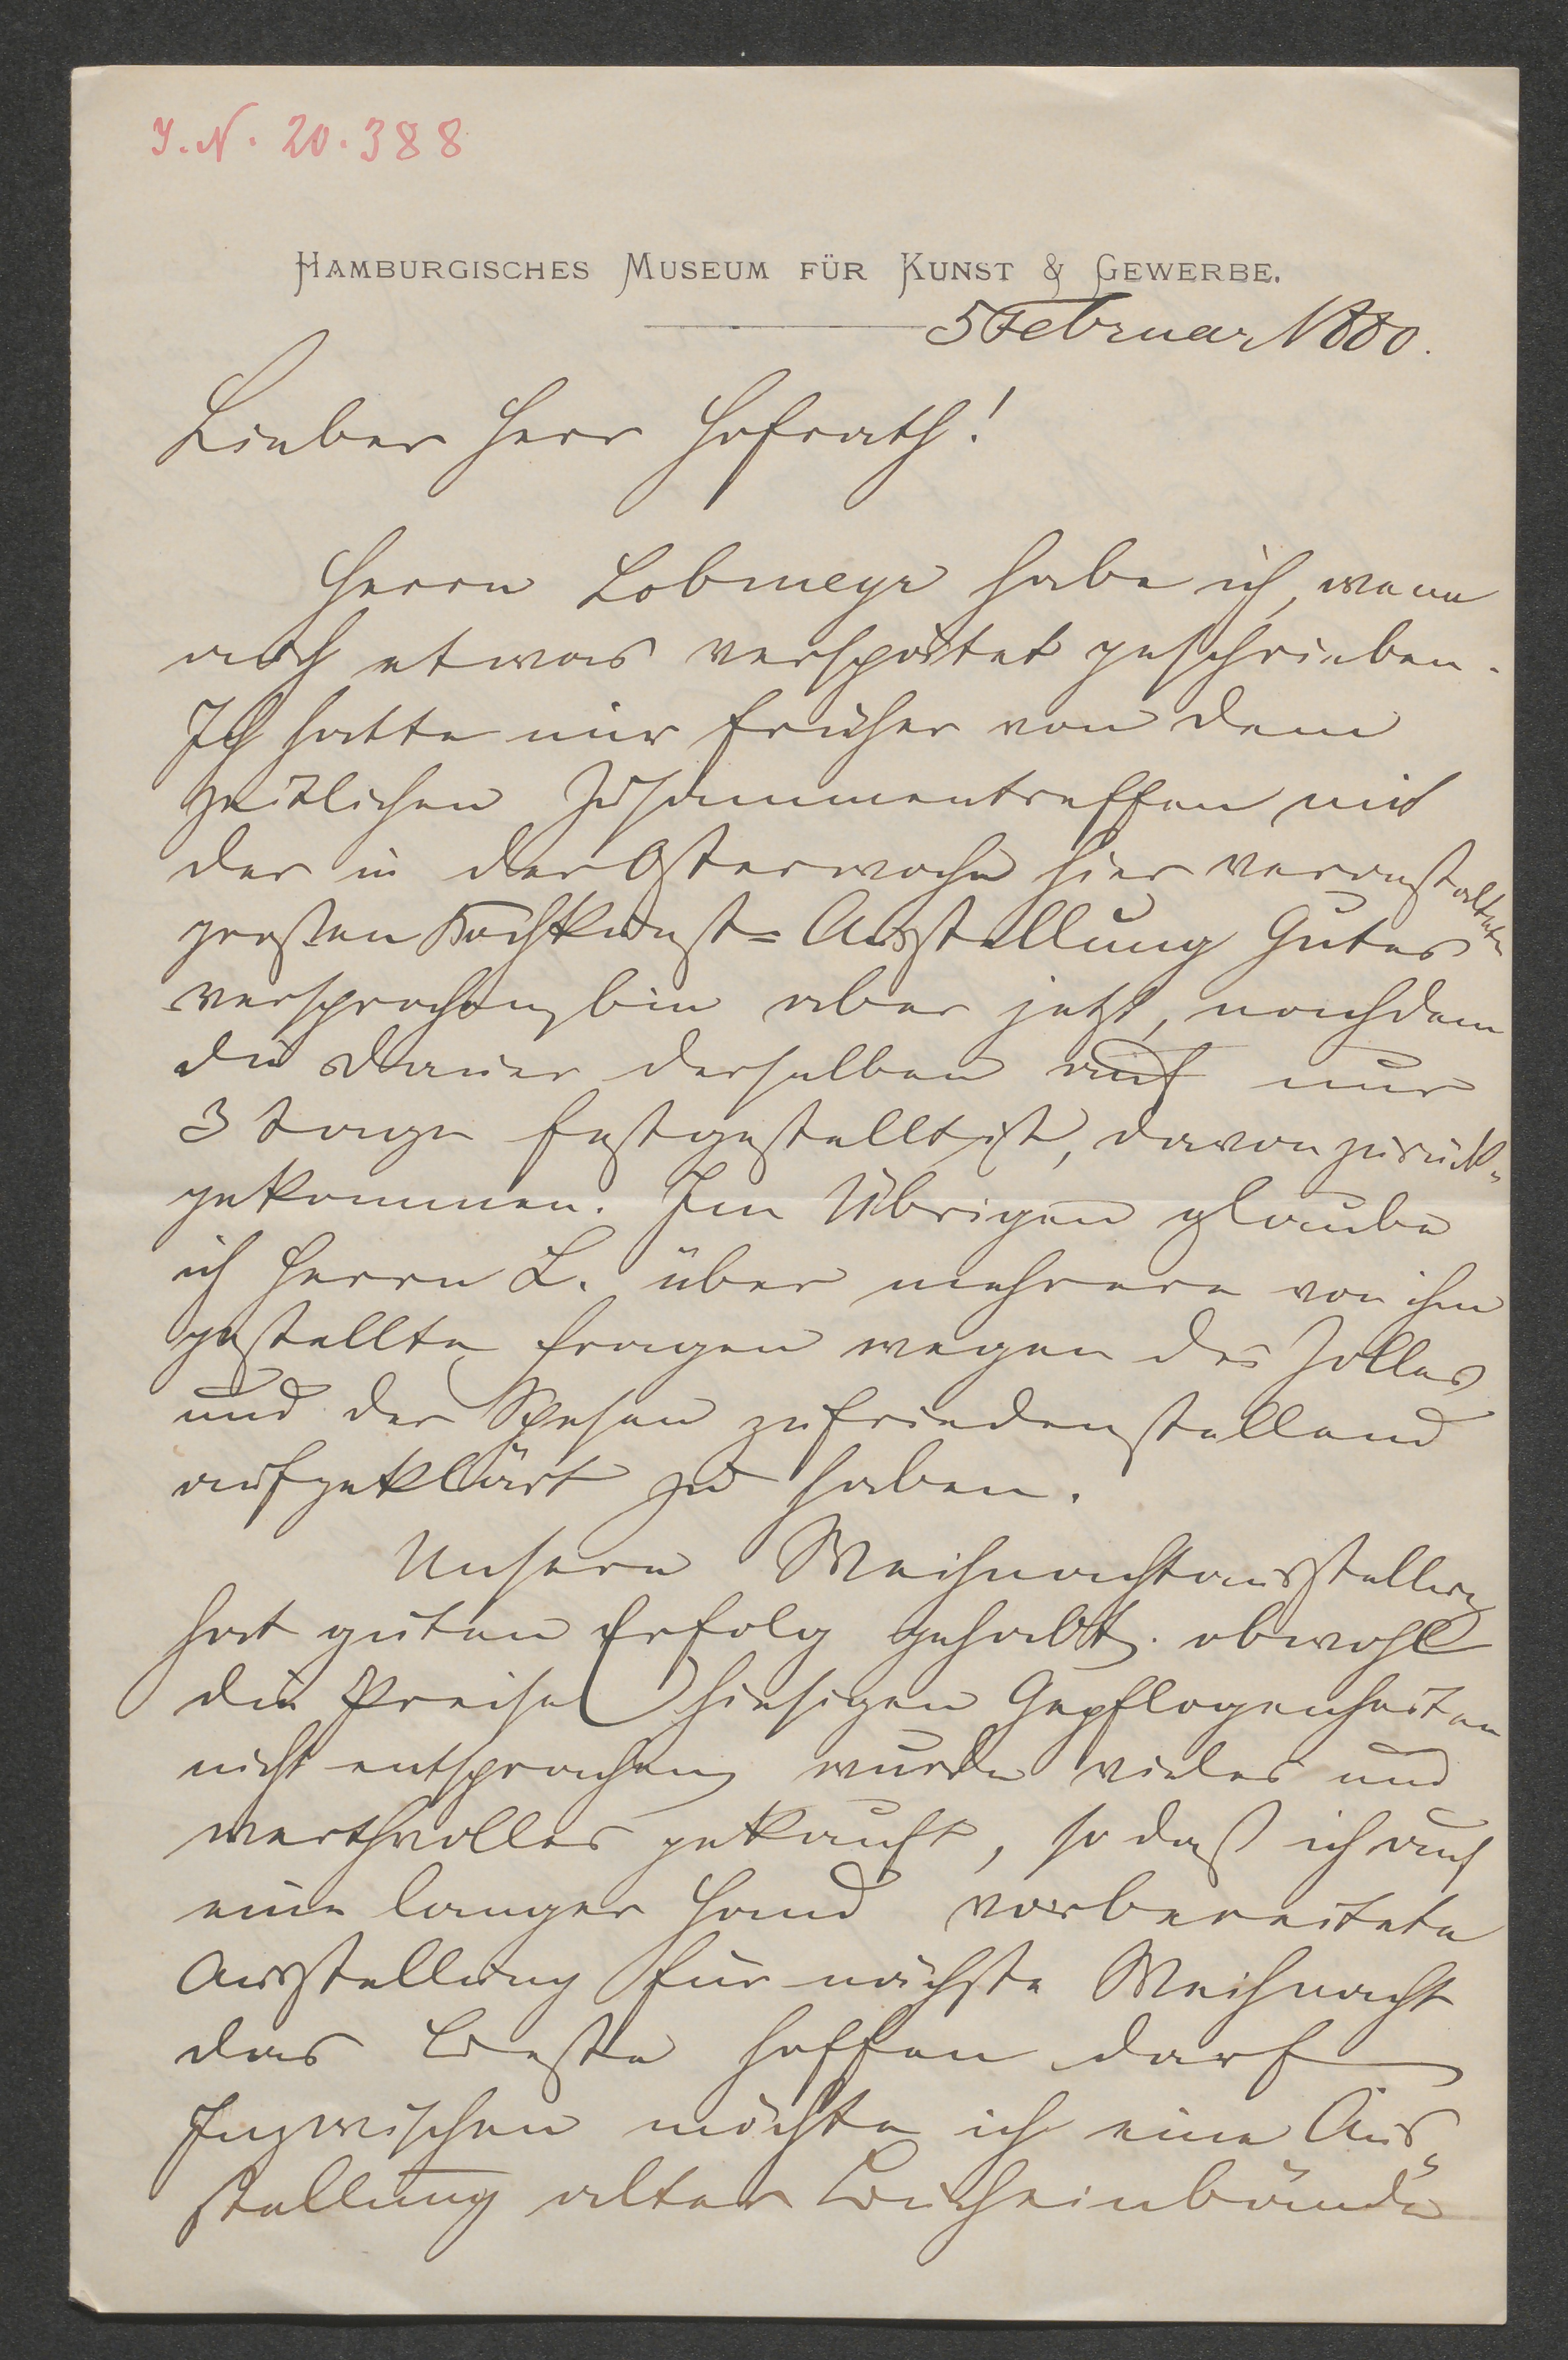 J. N. 20.388
HAMBURGISCHES MUSEUM FÜR KUNST & GEWERBE.
5 Februar 1880.
Lieber Herr Hofrath!
Herrn Lobmeyr habe ich, wenn
auch etwas verspätet geschrieben.
Ich hatte mir früher von dem
zeitlichen Zusammentreffen mit
der in der Osterwoche hier veranstalteten
großen Kochkunst-Ausstellung Gutes
versprochen, bin aber jetzt, nachdem
die Dauer derselben auf nur
3 Tage festgestellt ist, davon zurück-
gekommen. Im Übrigen glaube
ich Herrn L. über mehrere von ihm
gestellte Fragen wegen des Zolles
und der Spesen zufriedenstellend
aufgeklärt zu haben.
Unsere Weihnachtausstellung
hat guten Erfolg gehabt. obwohl
die Preise hiesigen Gepflogenheiten
nicht entsprachen, wurde vieles und
werthvolles gekauft, so daß ich auf
eine langer Hand vorbereitete
Ausstellung für nächste Weihnacht
das Beste hoffen darf
Inzwischen möchte ich eine Aus-
stellung alter Bucheinbände